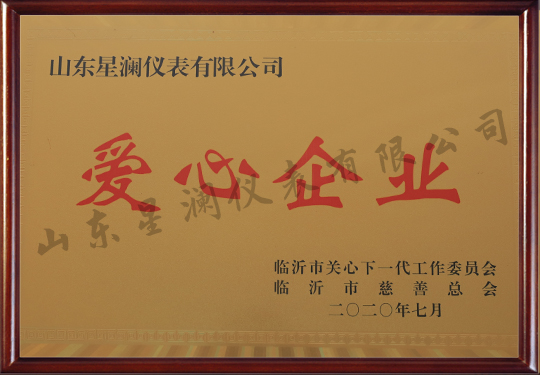 山东星澜仪表有限公司
爱心企业
山东星澜仪表有限公司
临沂市关心下一代工作委员会
临沂市慈善总会
二〇二〇年七月